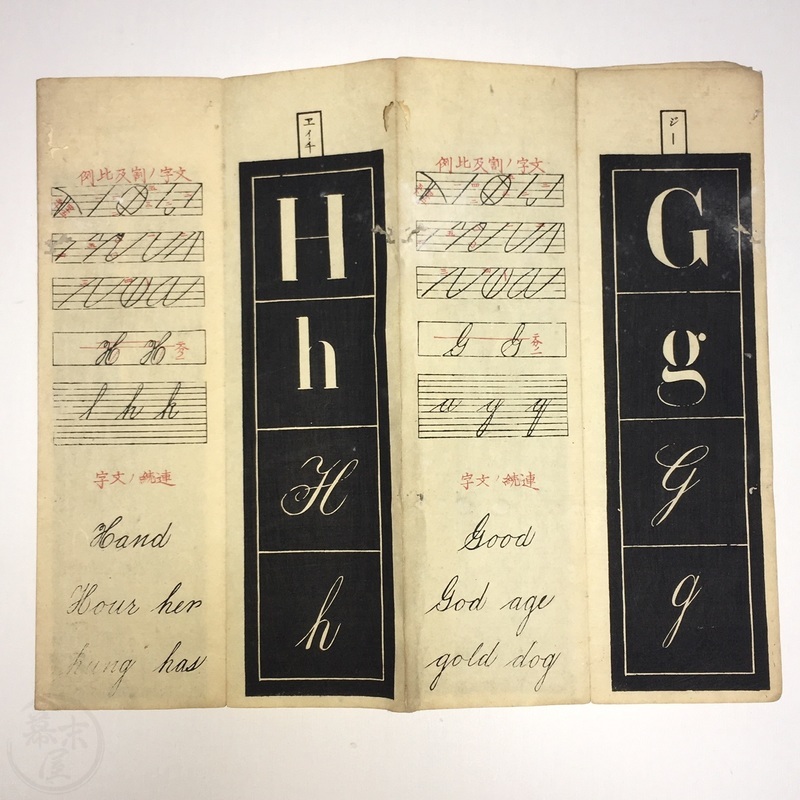 ジー
G
g
G
g
文字ノ割及比例
G G
連続ノ文字
Good
God age
gold dog
エイチ
H
h
H
h
文字ノ割及比例
H H
l h h
連続ノ文字
Hand
Hour her
hung has
幕末屋